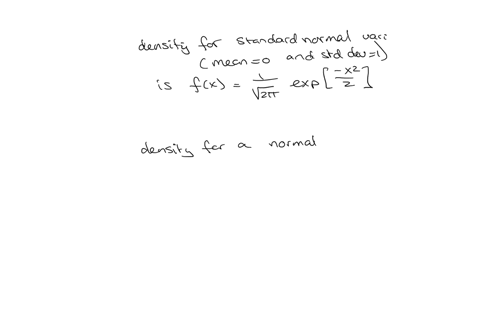 density for standard normal vari
(mean=0 and std dev=1)
is f(x) = 1/√2π exp[-x²/2]
density for a normal